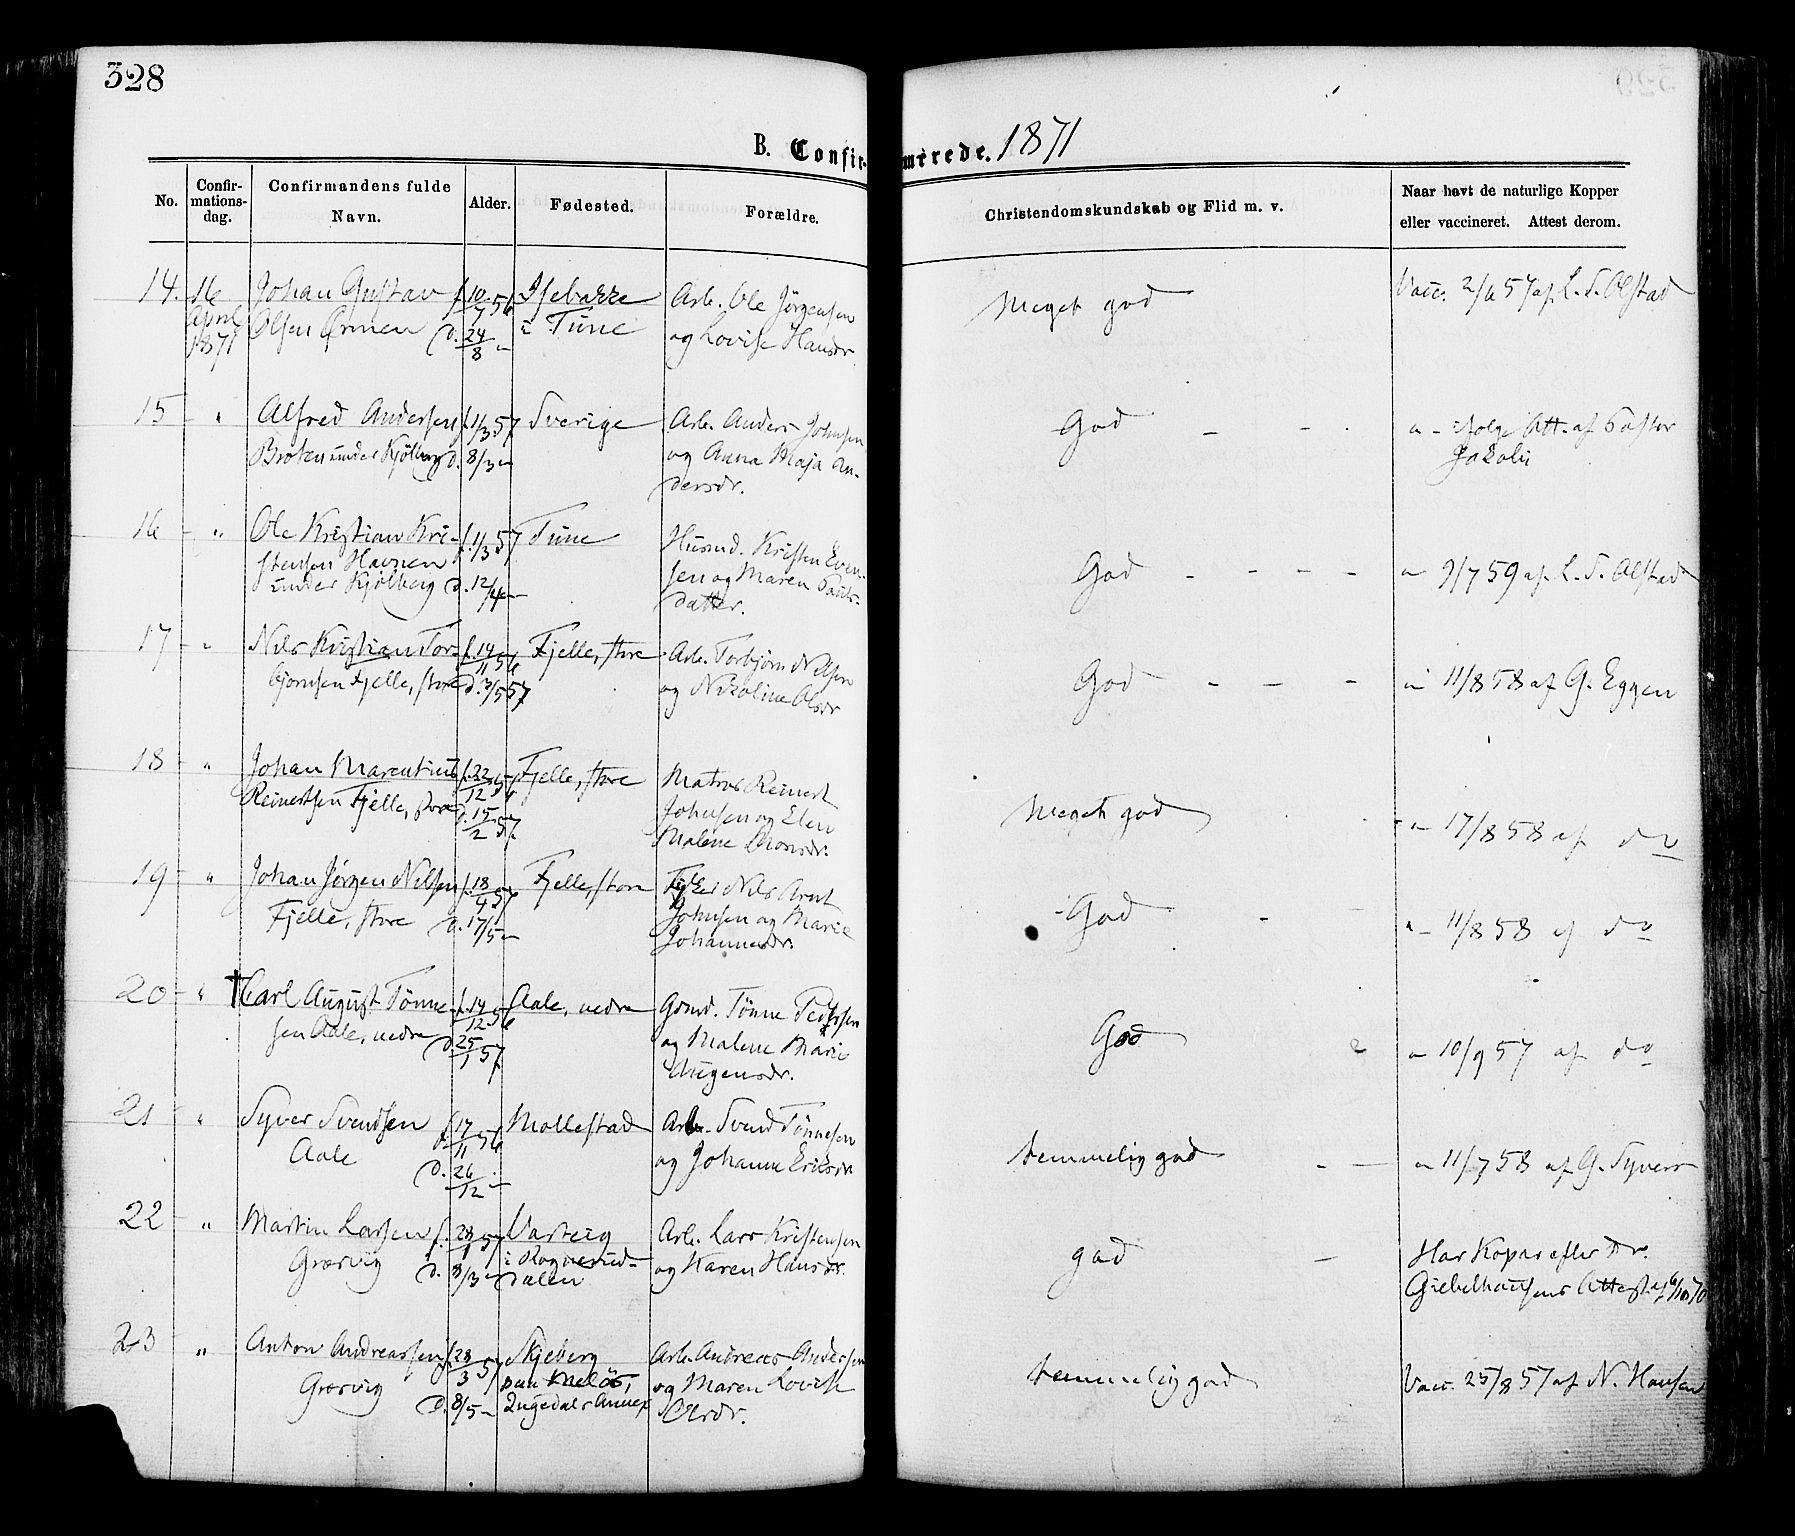 328
B. Confirmerede. 1871
No.
Confirmationsdag.
Confirmandens fulde Navn.
Alder.
Fødested.
Forældre.
Christendomskundskab og Flid m. v.
Naar havt de naturlige Kopper
eller vaccineret. Attest derom.
14. 16 April 1871
Johan Gustav
Olsen Ørmen
f. 10/7 56
d. 24/8 "
Isebakke
i Tune
Arb. Ole Jørgensen
og Lovise Hansdr
Meget god
Vacc. 2/6 57 af L. S. Olstad
15 "
Alfred Andersen
Brøten under Kjølberg
f. 1/3 57
d. 8/3 "
Sverige
Arb. Anders Johnsen
og Anna Maja An-
dersdr.
God
" ifølge Att. af Pastor
Jakobi
16 "
Ole Kristian Kri-
stensen Havnen
under Kjølberg
f. 11/3 57
d. 12/4 "
Tune
Husmd. Kristen Even-
sen og Maren Pauls-
datter.
God
" 9/7 59 af L. S. Olstad
17 "
Nils Kristian Tor-
bjørnsen Fjelle, store
f. 14/11 56
d. 3/5 57
Fjelle, store
Arb. Torbjørn Nilsen
og Nikoline Olsdr
God
" 11/8 58 af G. Eggen
18 "
Johan Marentius
Reinertsen Fjelle, store
f. 22/12 56
d. 15/2 57
Fjelle, store
Matros Reinert
Johnsen og Elen
Malene Monsdr.
Meget god
" 17/8 58 af do
19 "
Johan Jørgen Nilsen
Fjelle, store
f. 18/4 57
d. 17/5 "
Fjelle, store
Fisker Nils Arnt
Johnsen og Marie
Johannesdr.
God
" 11/8 58 af do
20 "
† Carl August Tønne-
sen Aale, nedre
f. 14/12 56
d. 25/1 57
Aale, nedre
Grmd. Tønne Pedersen
og Malene Marie
Mogensdr.
God
" 10/9 57 af do
21 "
Syver Svendsen
Aale
f. 17/11 56
d. 26/12 "
Mollestad
Arb. Svend Tønnesen
og Johanne Eriksdr
temmelig god
" 11/7 58 af G. Syvers
22 "
Martin Larsen
Græsvig
f. 28/1 57
d. 8/3 "
Varteig
i Rognerud-
dalen
Arb. Lars Kristensen
og Karen Hansdr.
god
Har Kopar efter Dr.
Giebelhausens Attest af 6/10 70
23 "
Anton Andreassen
Græsvig
f. 28/3 57
d. 8/5 "
Skjeberg
Ingedals Annex
Arb. Andreas Andersen
og Maren Lovise
Olsdr.
temmelig god
Vacc. 25/8 57 af N. Hansen